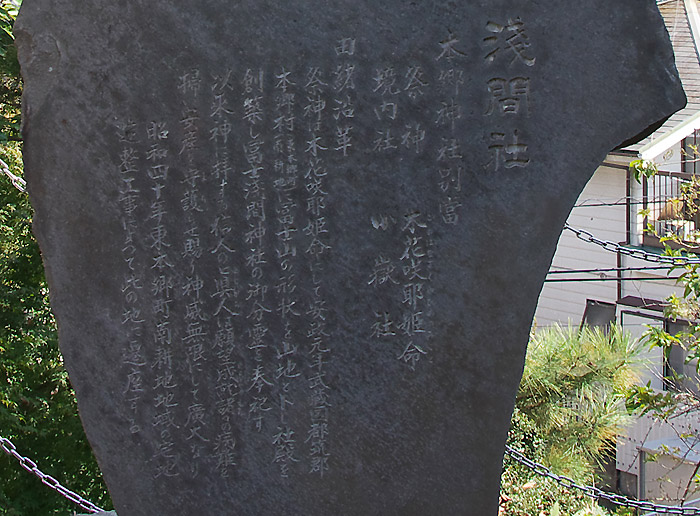 浅間社
本郷神社別當
祭神 木花咲耶姫命
境内社 小嶽社
由緒沿革
祭神は木花咲耶姫命にして安政元年武蔵国都筑郡
本郷村に富士山の形状と山地とト社殿を
創築し富士浅間神社の御分霊を奉祀す
以来神に拝する信人のに願望成就諸の病難を
掃い安産を守護せ賜う神威無限にして廣大なり
昭和四十年東本郷町南耕地地域の宅地
造整工事によって此の地に遷座する